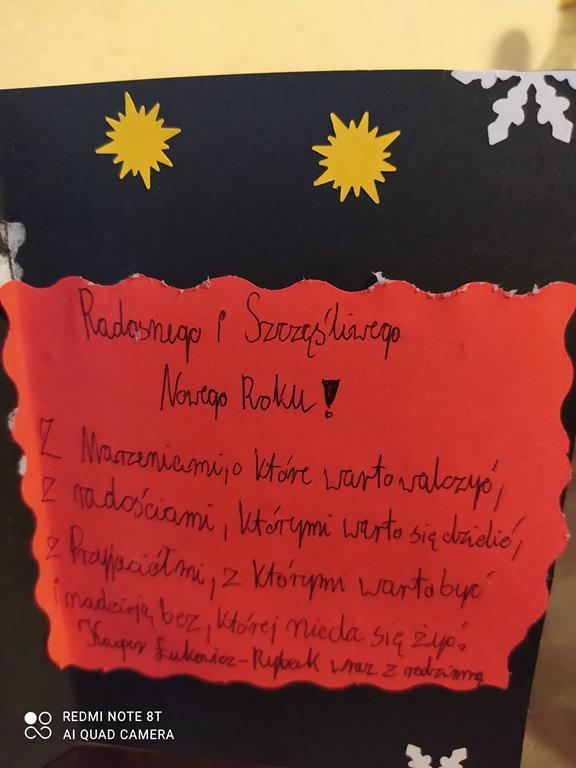 Radosnego i Szczęśliwego
Nowego Roku!
Z Marzeniami, o które warto walczyć,
z radościami, którymi warto się dzielić,
z Przyjaciółmi, z którymi warto być
i nadzieją bez, której nieda się żyć.
Kacper Łukowicz-Rybak wraz z rodzinną
REDMI NOTE 8T
AI QUAD CAMERA